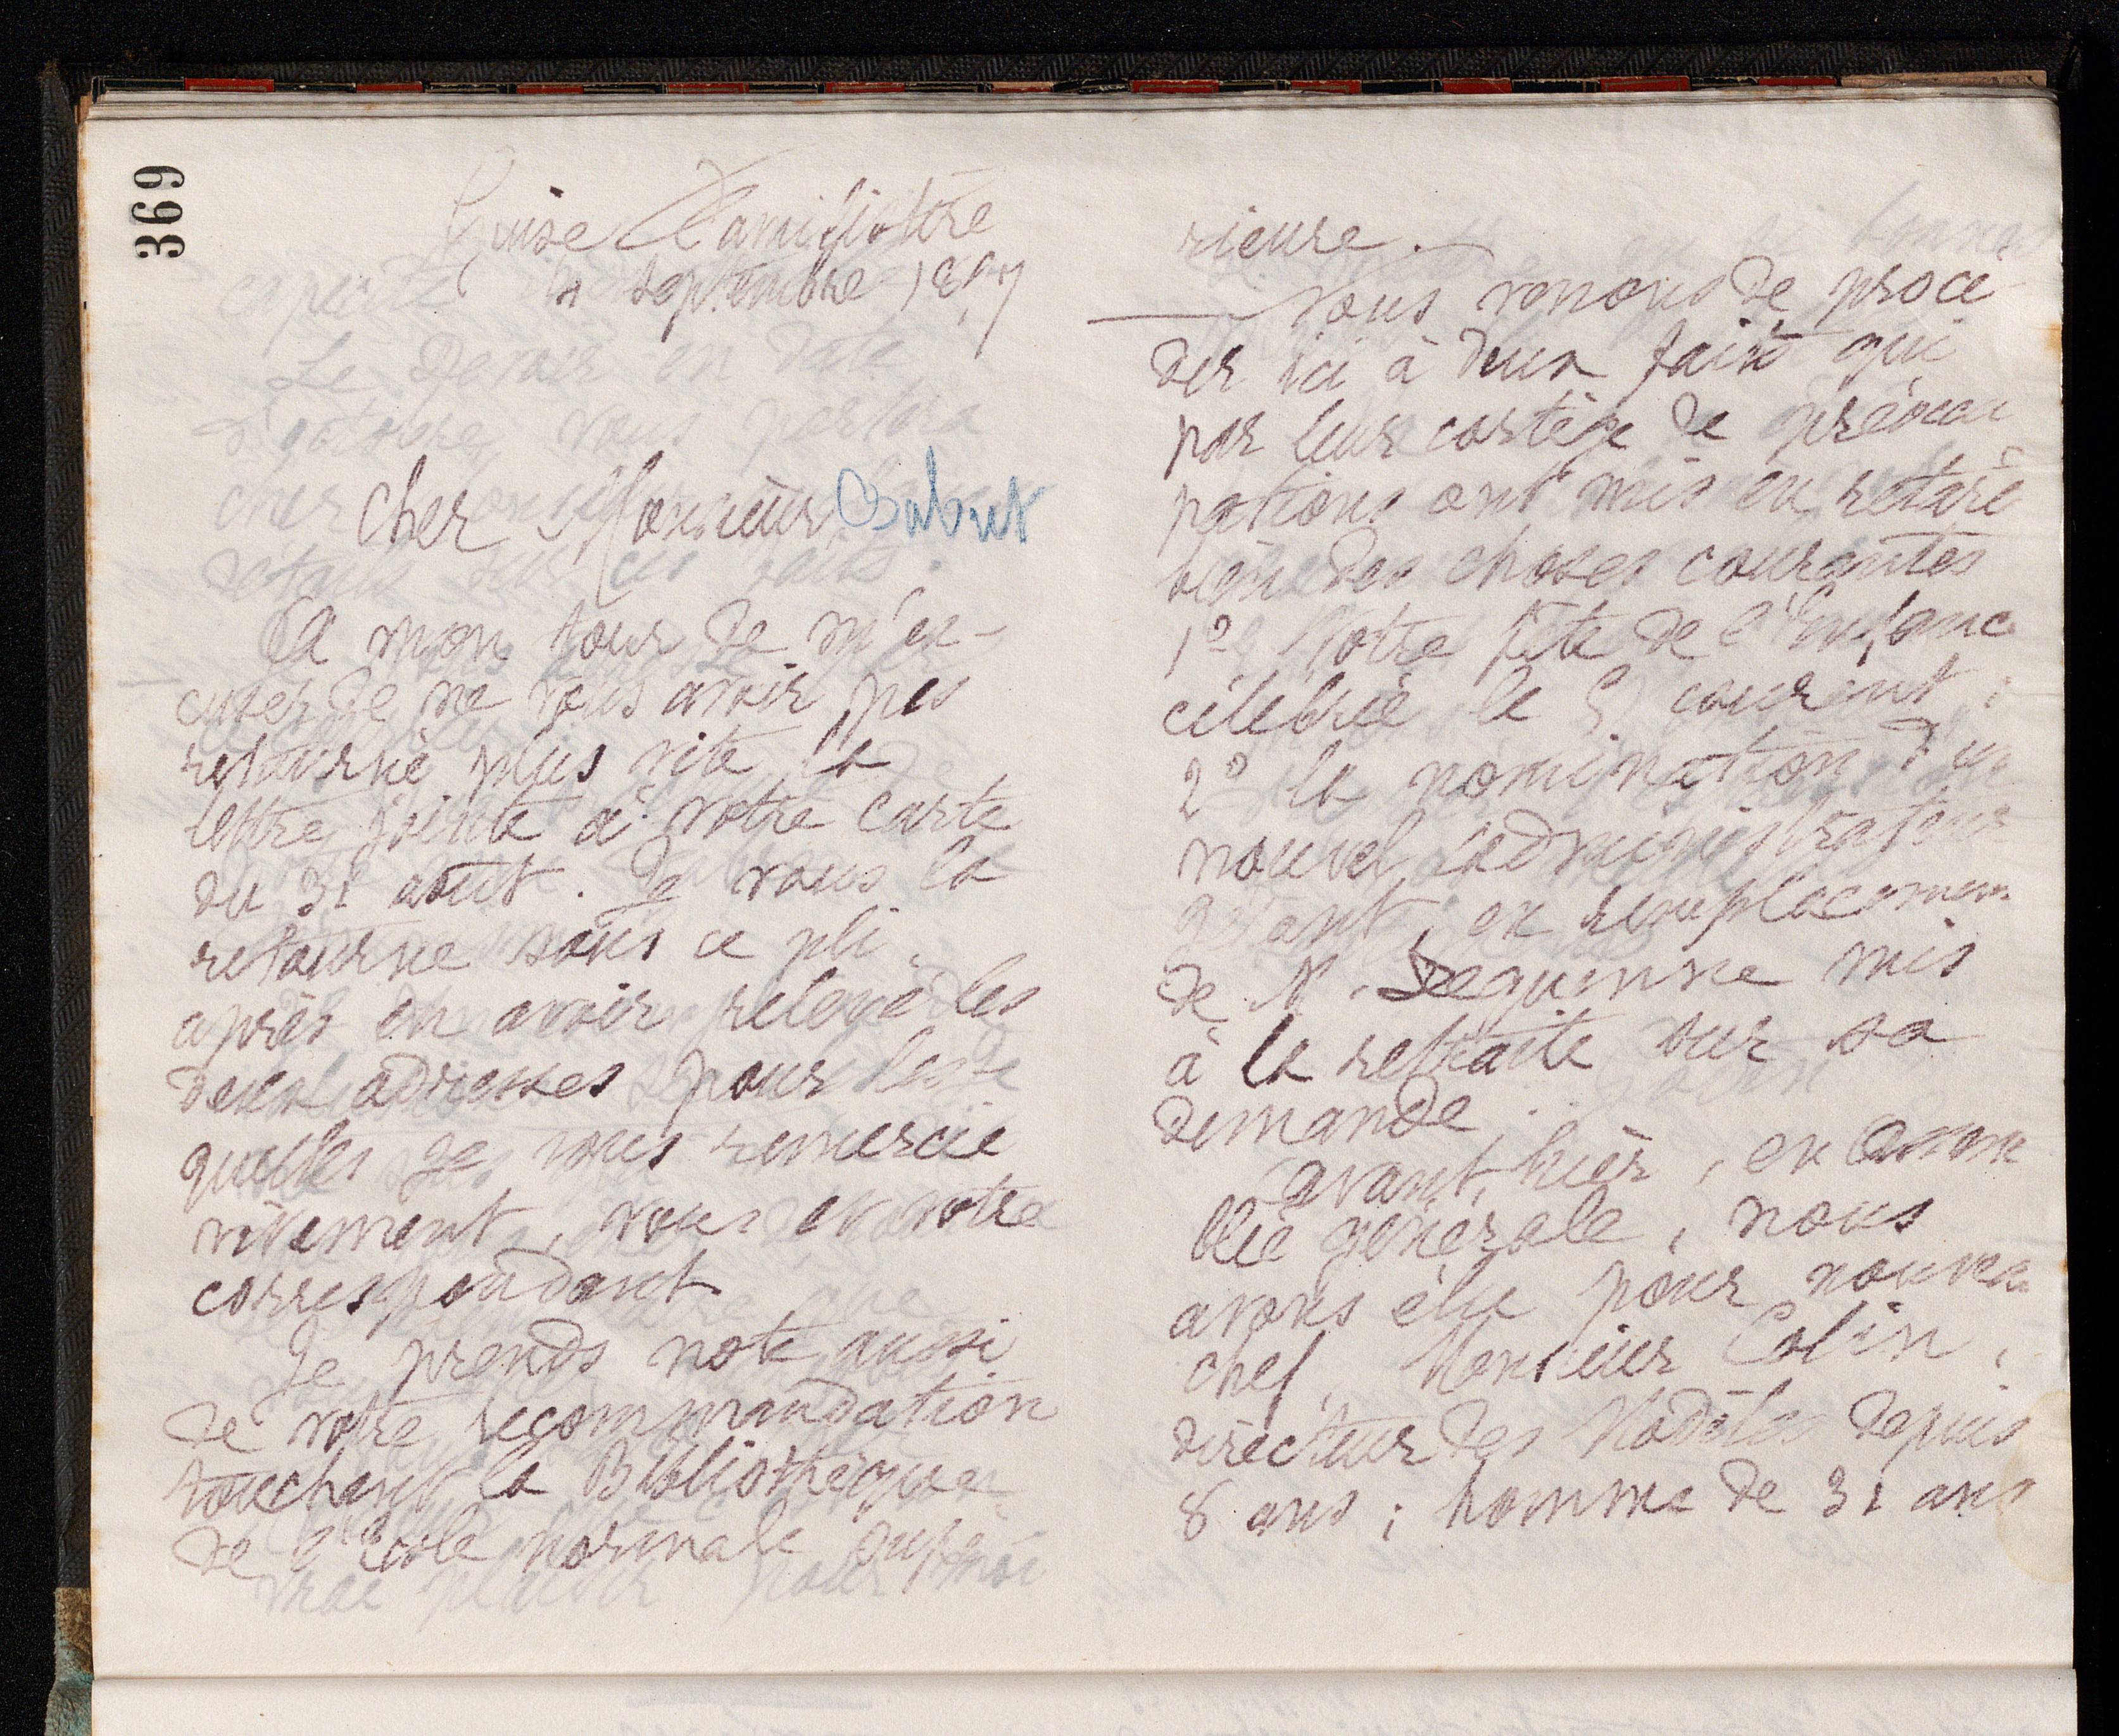 369
Guise Familistère
septembre 1897
Cher Monsieur Babut
A mon tour de m'ex-
cuser de ne vous avoir pas
retourné plus vite la
lettre jointe à votre carte
du 31 août. Je vous la
retourne sous ce pli,
après en avoir relevé les
deux adresses pour les-
quelles je vous remercie
vivement, vous et votre
correspondant.
Je prends note aussi
de votre recommandation
touchant la Bibliothèque
de l'Ecole normale supé
rieure.
Nous venons de procé
der ici à deux faits qui
par leur cortège de préoccu
pations ont mis en retard
bien des choses courantes
1º Notre fête de l'Enfance
célébrée le 5 courant ;
2º la nomination d'un
nouvel administrateur
gérant, en remplacemen
de M. Dequenne mis
à la retraite sur sa
demande.
avant hier, en assem
blée générale, nous
avons élu pour nouveau
chef, Monsieur Colin,
directeur des Modèles depuis
8 ans ; homme de 31 ans